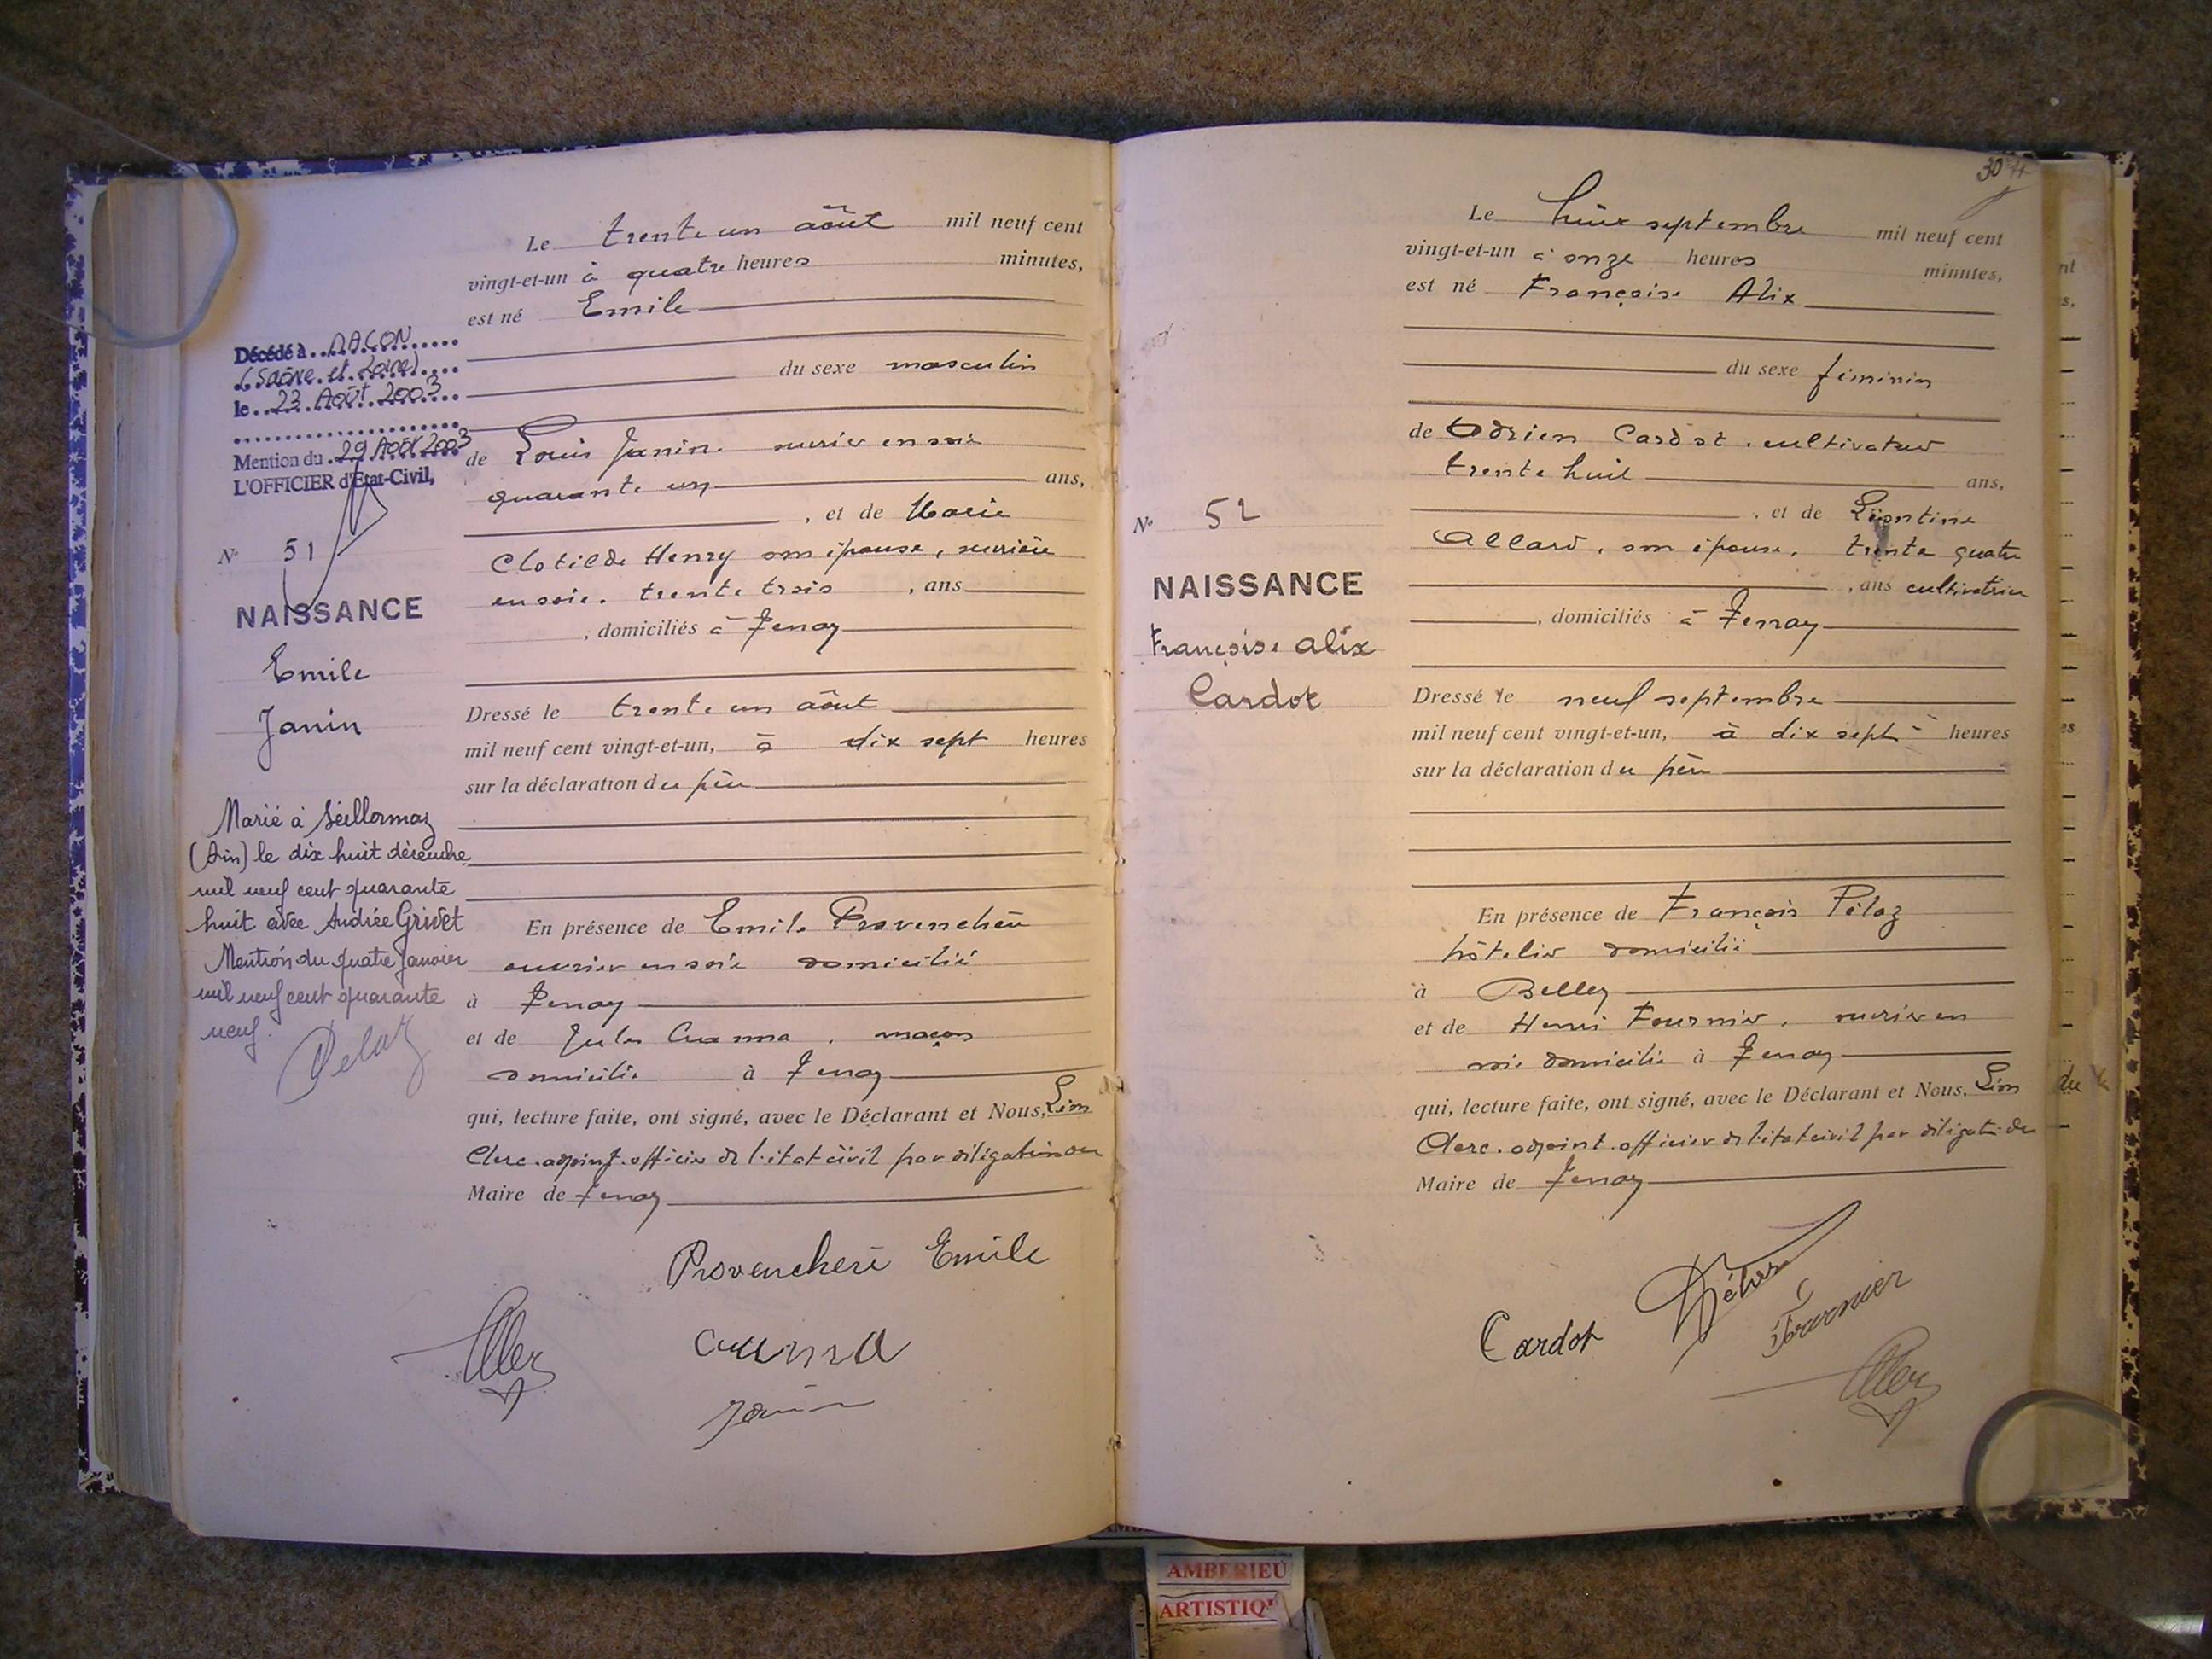 Le trente un août mil neuf cent
vingt-et-un à quatre heures minutes,
est né Emile
du sexe masculin
de Louis Janin. ouvrier en soie
quarante un ans,
, et de Marie
Clotilde Henry son épouse, ouvrière
en soie. trente trois , ans
, domiciliés à Tenay
Dressé le trente un août
mil neuf cent vingt-et-un, à dix sept heures
sur la déclaration du père
En présence de Emile Provenchère
ouvrier en soie domicilié
à Tenay
et de Jules , maçon
domicilié à Tenay
qui, lecture faite, ont signé, avec le Déclarant et Nous, Léon
Clerc. adjoint. officier de l'état civil par délégation du
Maire de Tenay
Provenchere Emile
Janin
Décédé à MACON
(Saône et Loire)
le 23 Août 2003
Mention du 29 Août 2003
L'OFFICIER d'Etat-Civil,
No 51
NAISSANCE
Emile
Janin
Marié à Seillonnaz
(Ain) le dix huit décembre
mil neuf cent quarante
huit avec Andrée Grivet
Mention du quatre Janvier
mil neuf cent quarante
neuf.
30
Le huit septembre mil neuf cent
vingt-et-un à onze heures minutes,
est né Françoise Alix
du sexe féminin
de Adrien Cardot. cultivateur
trente huit ans,
, et de Léontine
Allard, son épouse, trente quatre
, ans cultivatrice
, domiciliés à Tenay
Dressé le neuf septembre
mil neuf cent vingt-et-un, à dix sept heures
sur la déclaration du père
En présence de François Pélaz
hôtelier domicilié
à Belley
et de Henri Fournier, ouvrier en
soie domicilié à Tenay
qui, lecture faite, ont signé, avec le Déclarant et Nous, Léon
Clerc. adjoint. officier de l'état civil par délégation du
Maire de Tenay
Cardot
Fournier
No 52
NAISSANCE
Françoise Alix
Cardot
du
AMBERIEU
ARTISTIQ